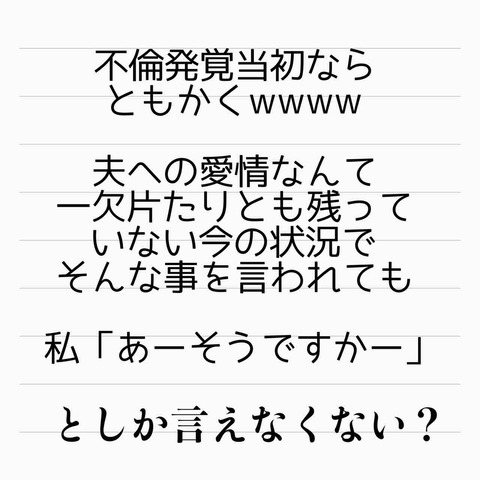 不倫発覚当初なら
ともかくwwww
夫への愛情なんて
一欠片たりとも残って
いない今の状況で
そんな事を言われても
私「あーそうですかー」
としか言えなくない？